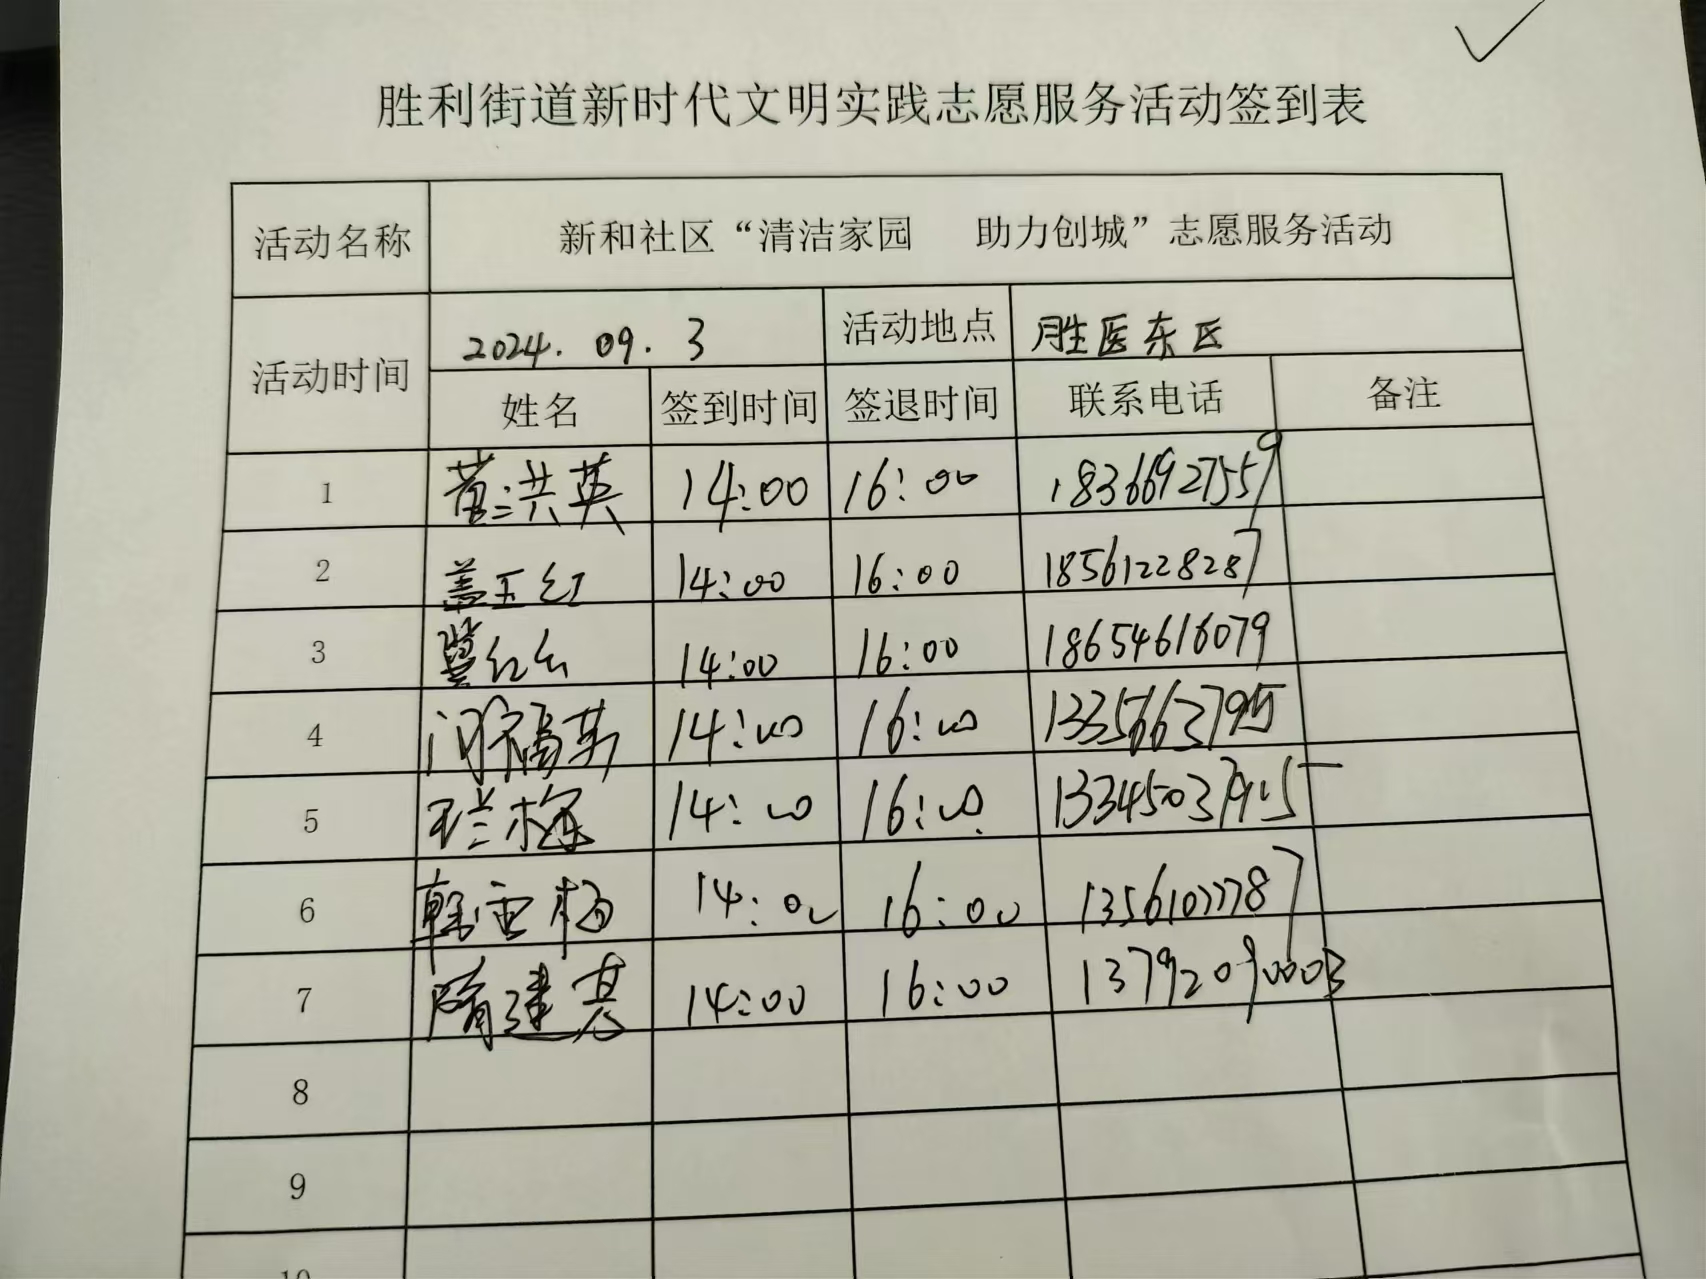 胜利街道新时代文明实践志愿服务活动签到表
活动名称 新和社区“清洁家园 助力创城”志愿服务活动
活动时间 2024.09.3 活动地点 胜医东区
姓名 签到时间 签退时间 联系电话 备注
1 董洪英 14:00 16:00 18366927559
2 盖玉红 14:00 16:00 18561228287
3 冀红 14:00 16:00 18654616079
4 闫福英 14:00 16:00 13356637795
5 王兰梅 14:00 16:00
6 韩雪梅 14:00 16:00 13561077787
7 隋建基 14:00 16:00 13792090003
8
9
10